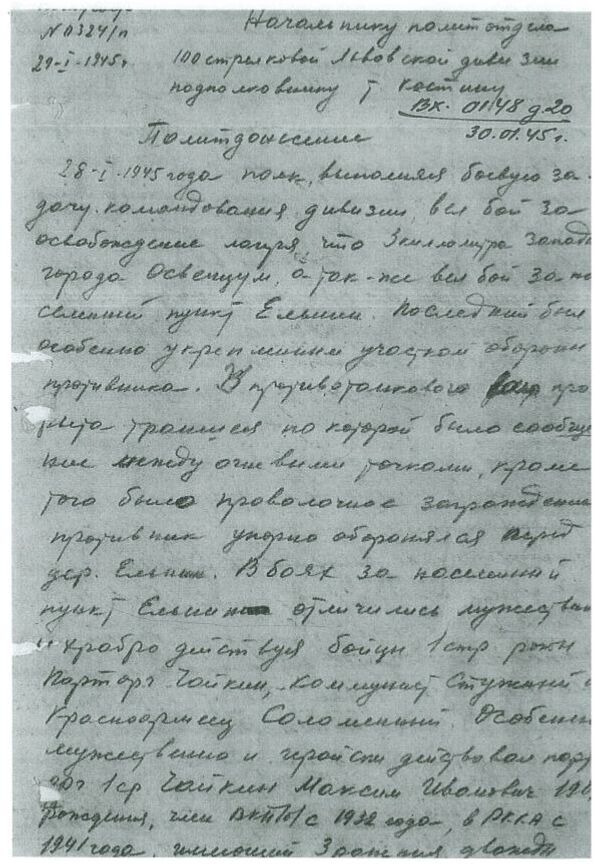 Начальнику политотдела
N 0324/п
29-I-1945г.
100 стрелковой Львовской дивизии
подполковнику т Костину
Вх. 0148 д-20
30.01.45г.
Политдонесение
28-I-1945 года полк, выполняя боевую за-
дачу командования дивизии, вел бой за
освобождение лагеря, что 3 километра запад
города Освенцум, а так-же вел бой за на
селенный пункт Ельнин. Последний был
особенно укрепленным участком обороны
противника. В противотанкового про
рыта траншея по которой было сообще
ние между огневыми точками, кроме
того было проволочное заграждение
противник упорно оборонялся перед
дер. Ельнин. В боях за населенный
пункт Ельнин отличились мужествен
и храбро действуя бойцы 1 стр роты
Парторг Чайкин, коммунист Стужный
Красноармеец Соломенный. Особенн
мужественно и геройски действовал парт
орг 1 ср Чайкин Максим Иванович
рождения, член ВКП/б/ с 1932 года, в РККА с
1941 года, имеющий 3 ранения дважды